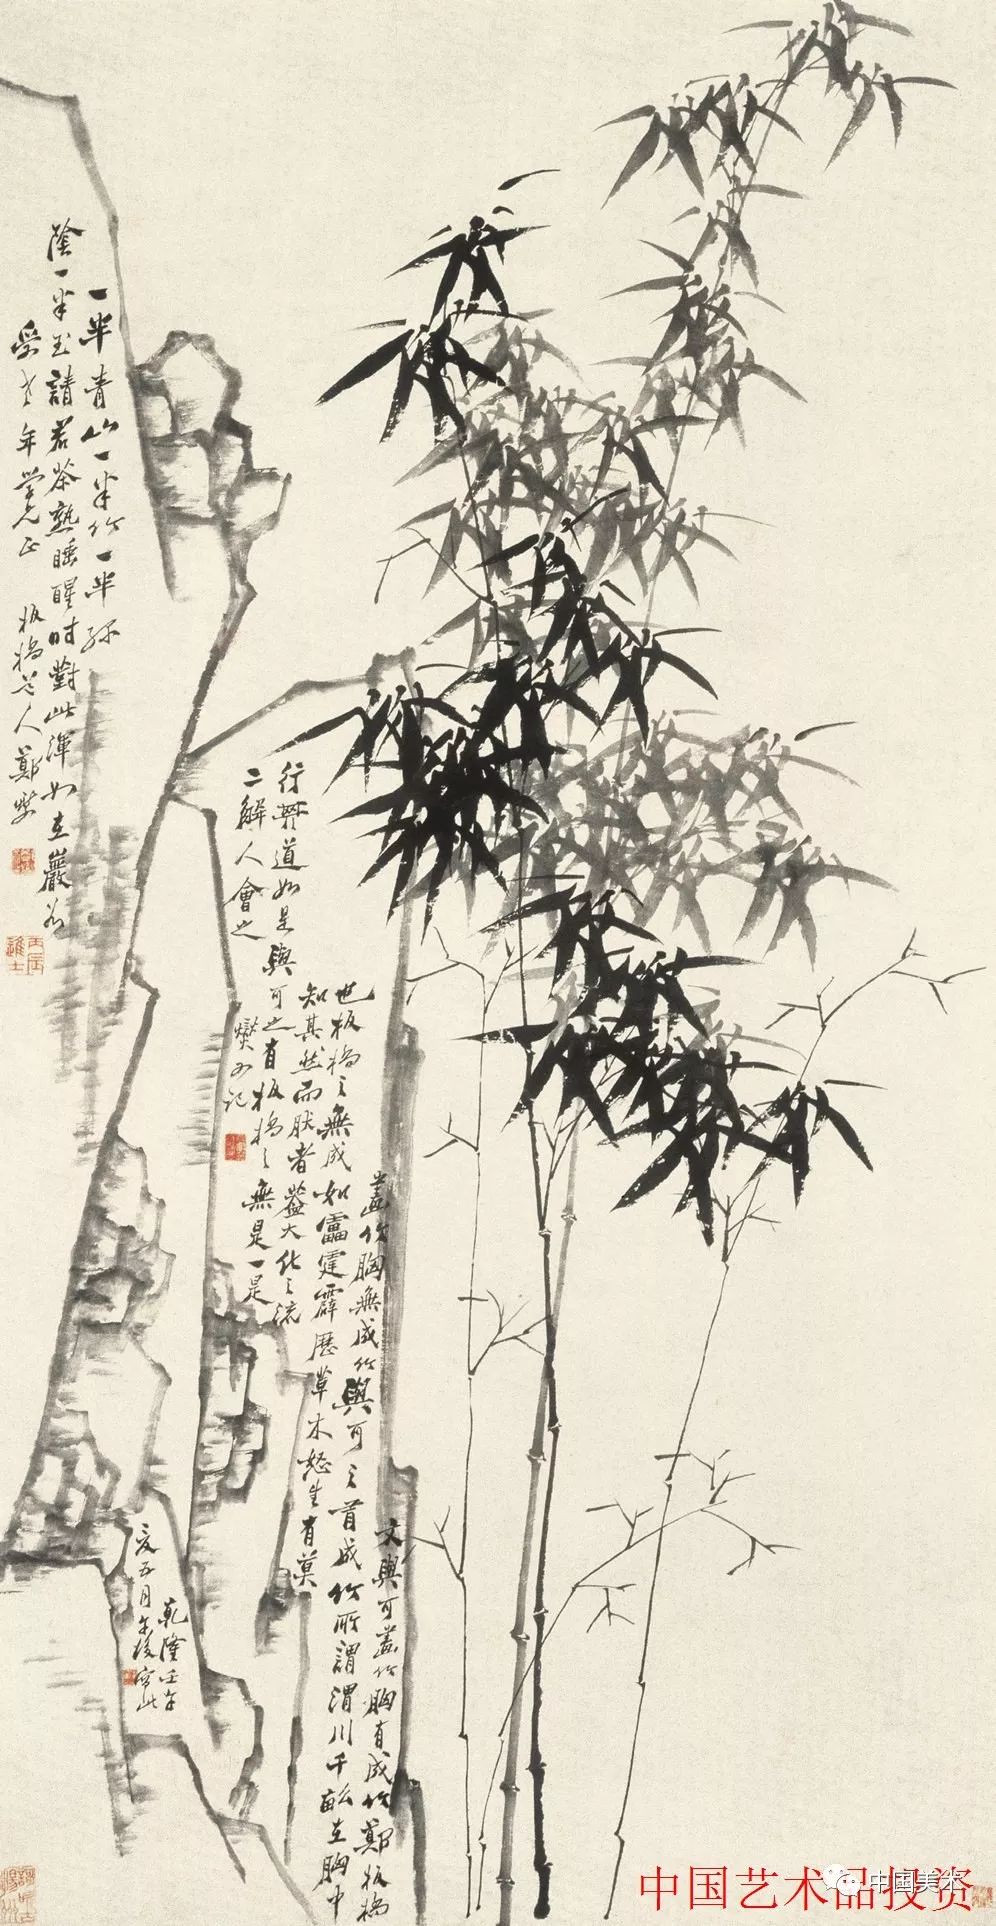 一半青山一半竹一半綠
陰一半玉請君茶熟睡醒時對此渾如在巖谷
老年學兄正 板橋道人鄭燮
丙辰進士
文與可畫竹胸有成竹鄭板橋
畫竹胸無成竹與可之有成竹所謂渭川千畝在胸中
也板橋之無成如雷霆霹歷草木怒生有莫
知其然而然者蓋大化之流
行其道如是與可之有板橋之無是一是
二解人會之
燮又記
乾隆壬午
夏五月午後寫此
中国艺术品投资
中国美术